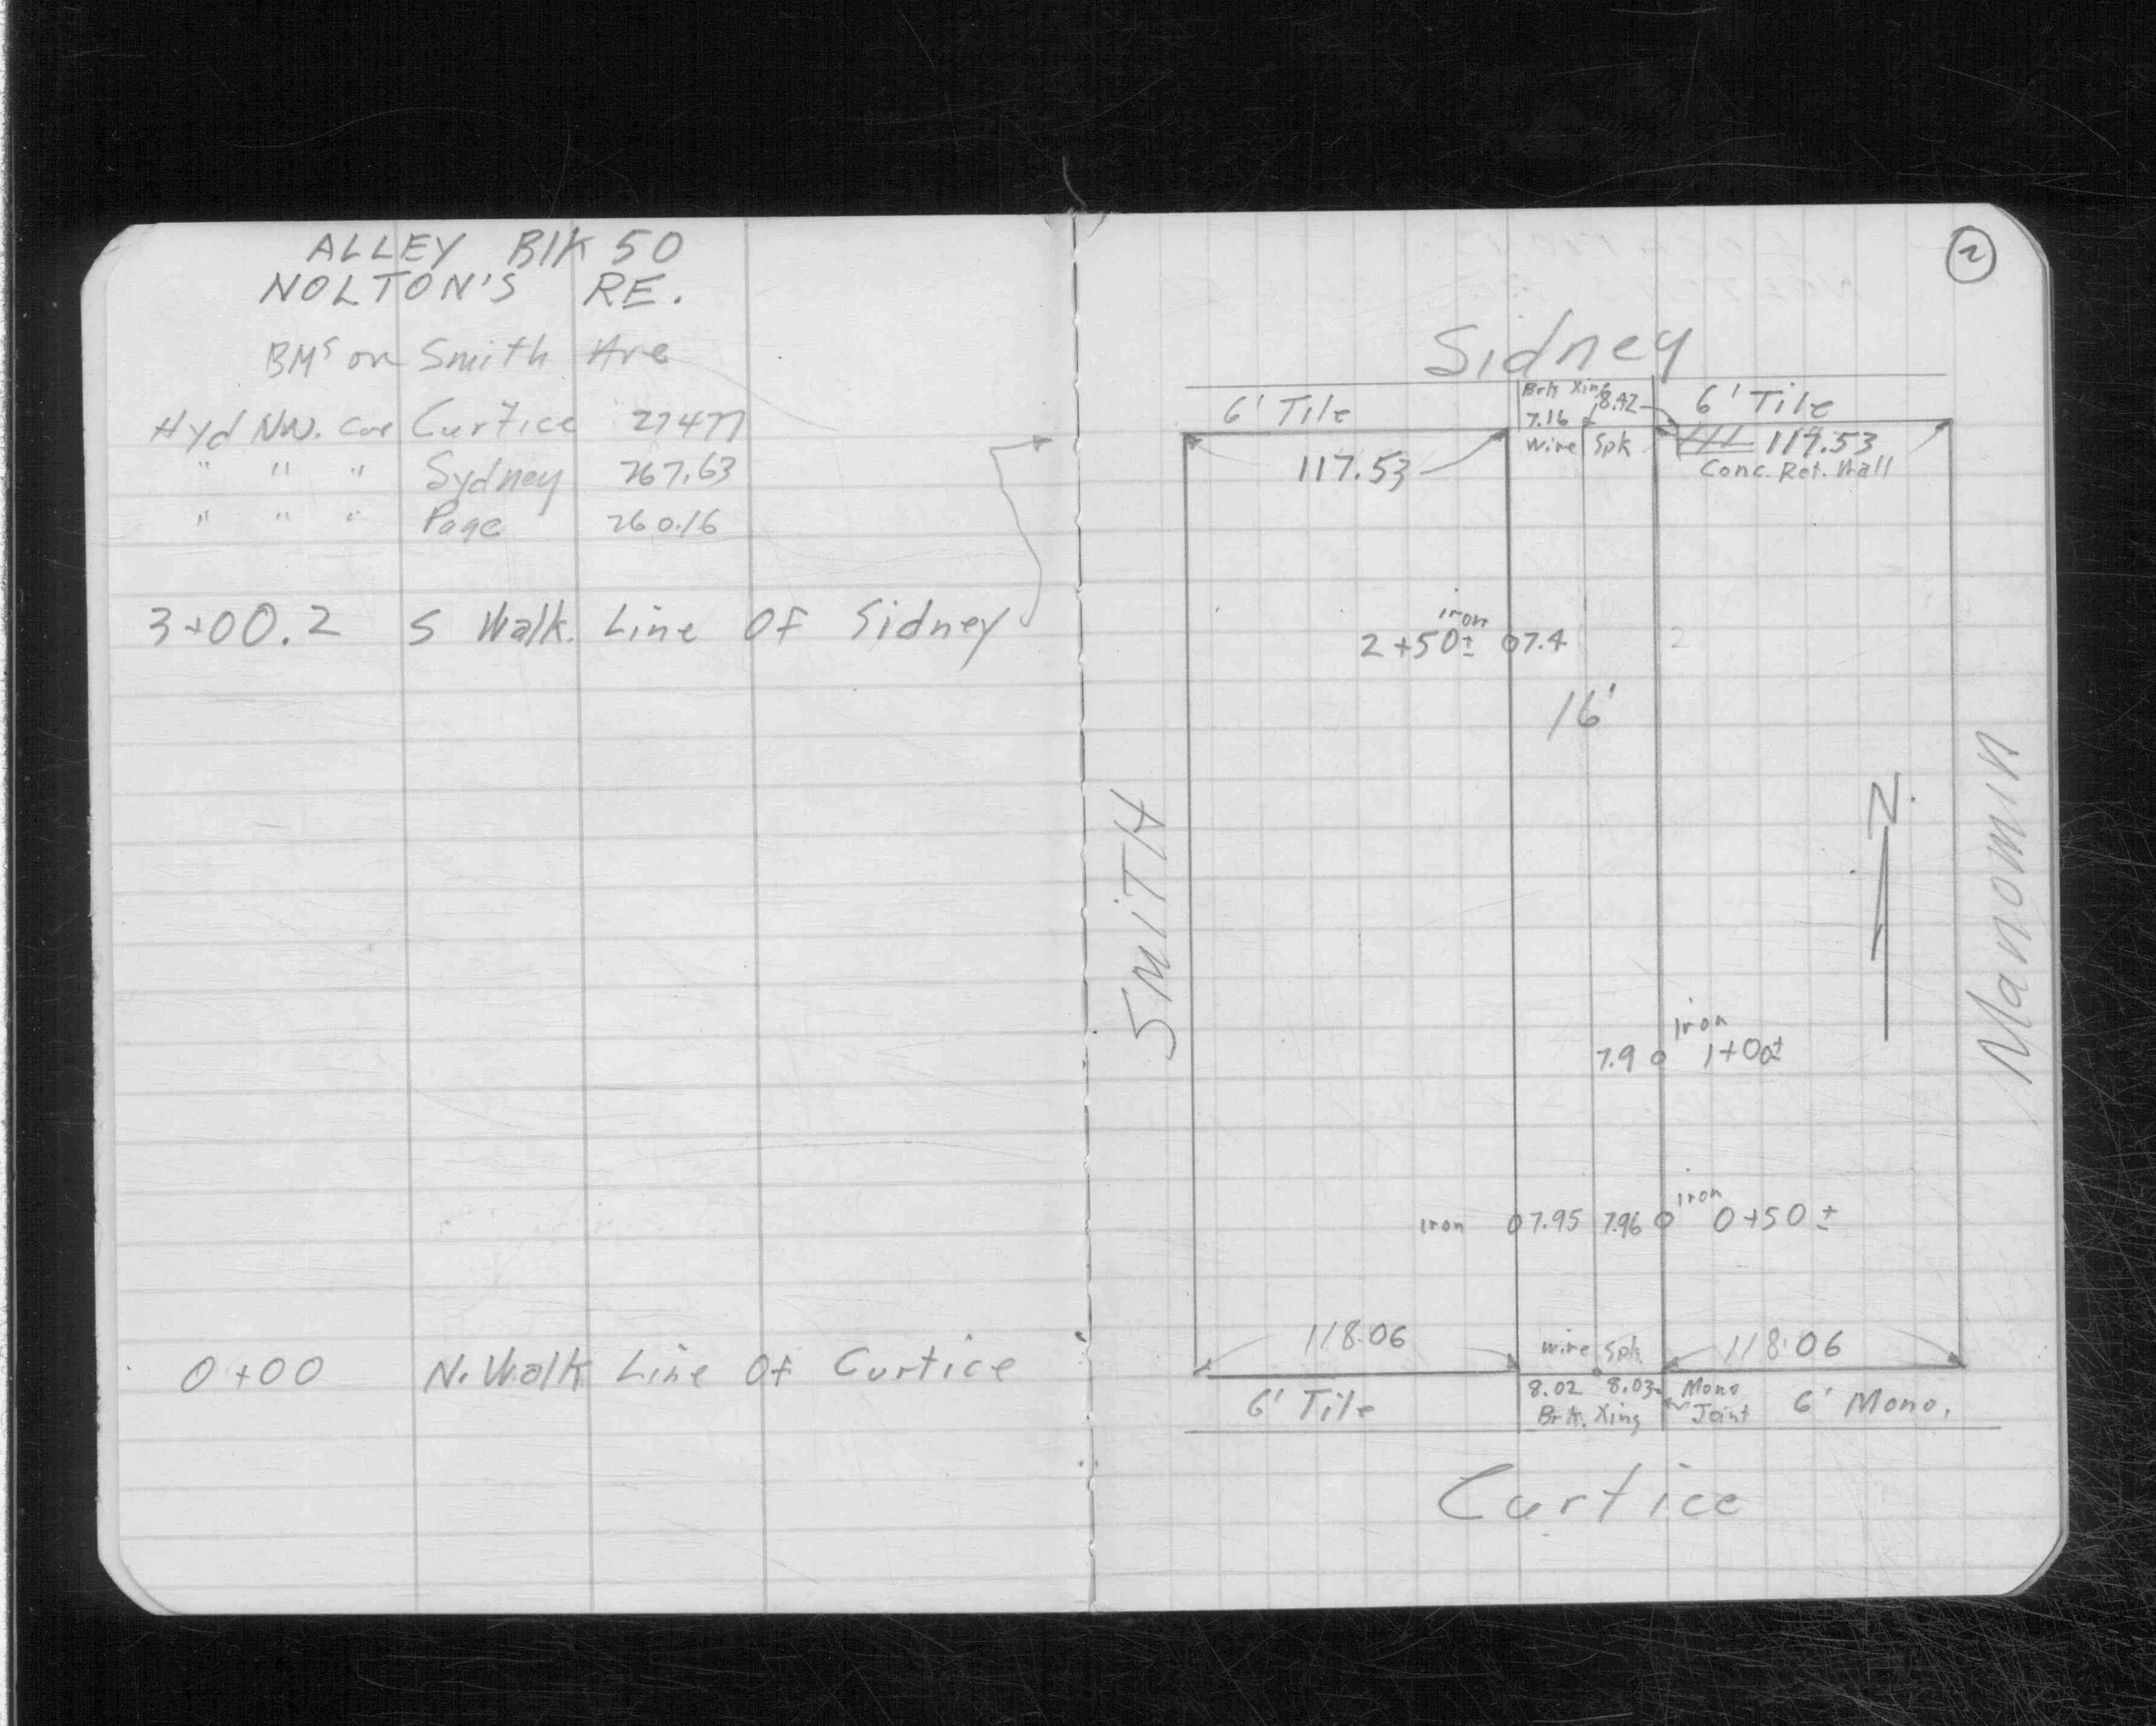 ALLEY BlK 50
NOLTON'S RE.
BMs on Smith Ave
Hyd NW. Cor Curtice 27477
" " " Sydney 267.63
" " " Page 260.16
3+00.2 S Walk. Line Of Sidney
0+00 N. Walk Line Of Curtice
2
Sidney
6' Tile Brk Xing 8.42 6' Tile
7.16
117.53 Wire Spk 117.53
Conc. Ret. Wall
iron
2+50± 07.4
16'
SMiTH
N.
Manomin
Iron
7.9 0 1+00±
Iron
Iron 07.95 7.96 0 0+50±
118.06 wire Spk 118.06
8.02 8.03 Mono
6' Tile Brk. Xing Joint 6' Mono.
Curtice